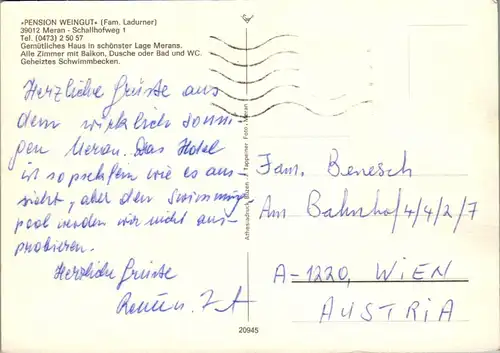 «PENSION WEINGUT» (Fam. Ladurner)
39012 Meran - Schallhofweg 1
Tel. (0473) 2 50 57
Gemütliches Haus in schönster Lage Merans.
Alle Zimmer mit Balkon, Dusche oder Bad und WC.
Geheiztes Schwimmbecken.
Herzliche Grüsse aus
dem wirklich sonni-
gen Meran. Das Hotel
ist so wie es aus-
sieht, aber den Swimming-
pool werden wir nicht aus-
probieren.
Herzliche Grüsse
Fam. Benesch
Am Bahnhof 4/4/2/7
A-1220, WIEN
AUSTRIA
Tappeiner Foto - Meran
20945